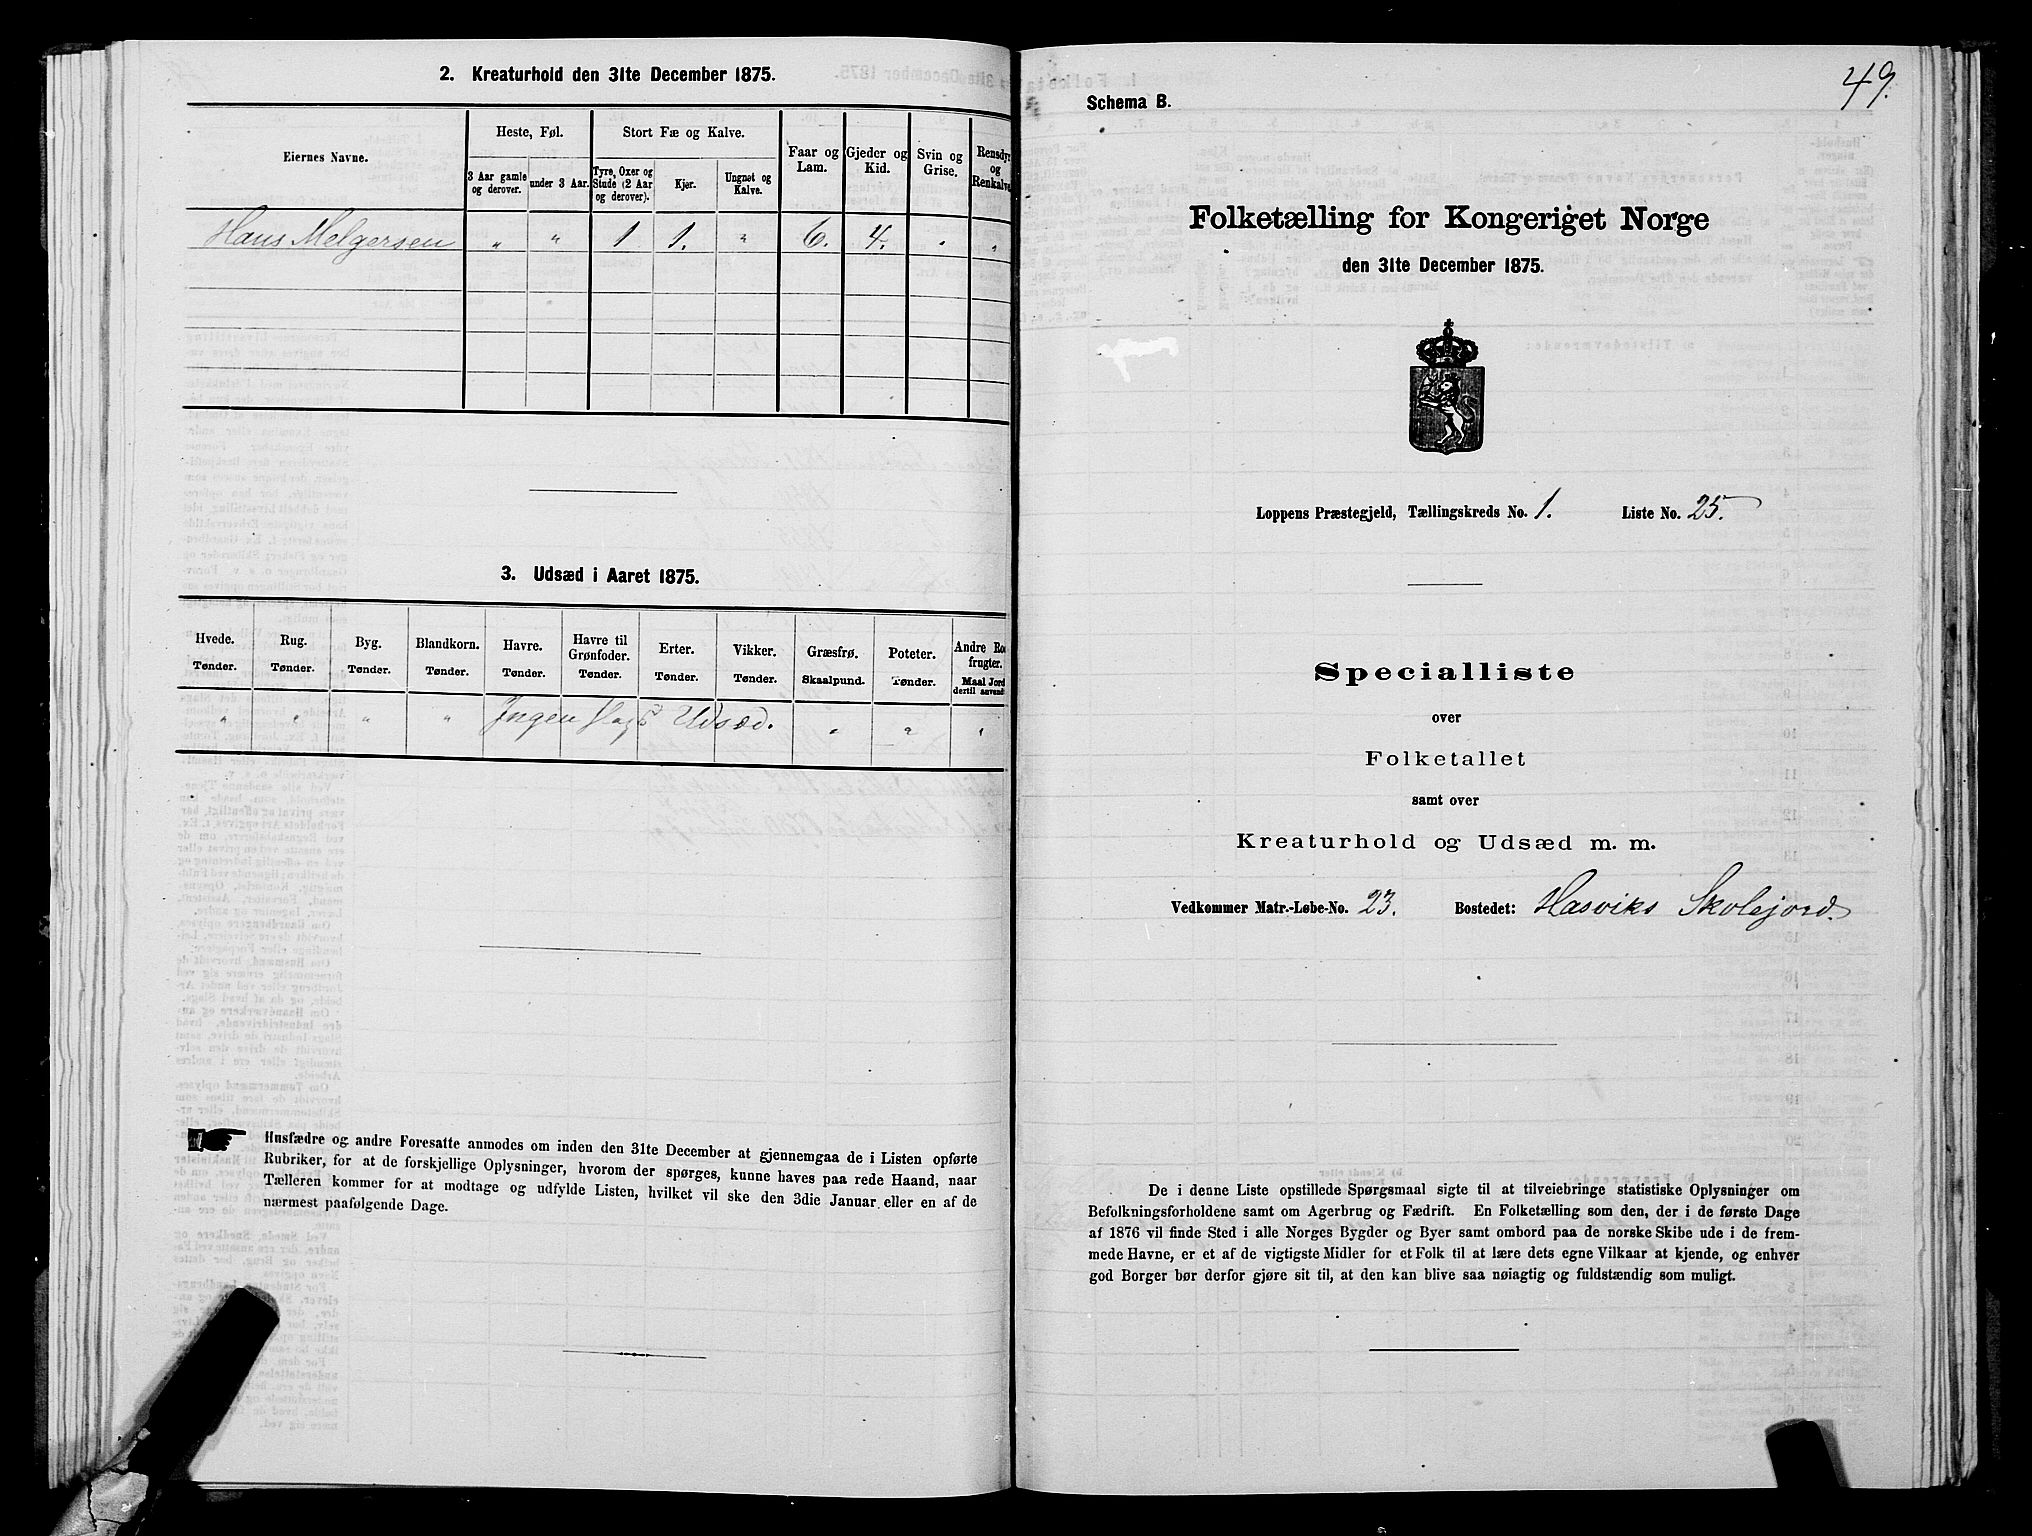 2. Kreaturhold den 31te December 1875.
Eiernes Navne.
Heste, Føl.
Stort Fæ og Kalve.
Faar og Lam.
Gjeder og Kid.
Svin og Grise.
Rensdyr og Renkalve
3 Aar gamle og derover.
under 3 Aar.
Tyre, Oxer og Stude (2 Aar og derover).
Kjør.
Ungnøt og Kalve.
Hans Melgersen " " 1 1. " 6. 4. " "
3. Udsæd i Aaret 1875.
Hvede. Rug. Byg. Blandkorn. Havre. Havre til Grønfoder. Erter. Vikker. Græsfrø. Poteter. Andre Ro frugter.
Tønder. Tønder. Tønder. Tønder. Tønder. Tønder. Tønder. Tønder. Skaalpund. Tønder. Maal Jord dertil anvend
" " " " Ingen Slags Udsæd. " " "
Husfædre og andre Foresatte anmodes om inden den 31te December at gjennemgaa de i Listen opførte
Rubriker, for at de forskjellige Oplysninger, hvorom der spørges, kunne haves paa rede Haand, naar
Tælleren kommer for at modtage og udfylde Listen, hvilket vil ske den 3die Januar eller en af de
nærmest paafølgende Dage.
49.
Schema B.
Folketælling for Kongeriget Norge
den 31te December 1875.
Loppens Præstegjeld, Tællingskreds No. 1. Liste No. 25.
Specialliste
over
Folketallet
samt over
Kreaturhold og Udsæd m. m.
Vedkommer Matr.-Løbe-No. 23. Bostedet: Hasviks Skolejord.
De i denne Liste opstillede Spørgsmaal sigte til at tilveiebringe statistiske Oplysninger om
Befolkningsforholdene samt om Agerbrug og Fædrift. En Folketælling som den, der i de første Dage
af 1876 vil finde Sted i alle Norges Bygder og Byer samt ombord paa de norske Skibe ude i de frem-
mede Havne, er et af de vigtigste Midler for et Folk til at lære dets egne Vilkaar at kjende, og enhver
god Borger bør derfor gjøre sit til, at den kan blive saa nøiagtig og fuldstændig som muligt.